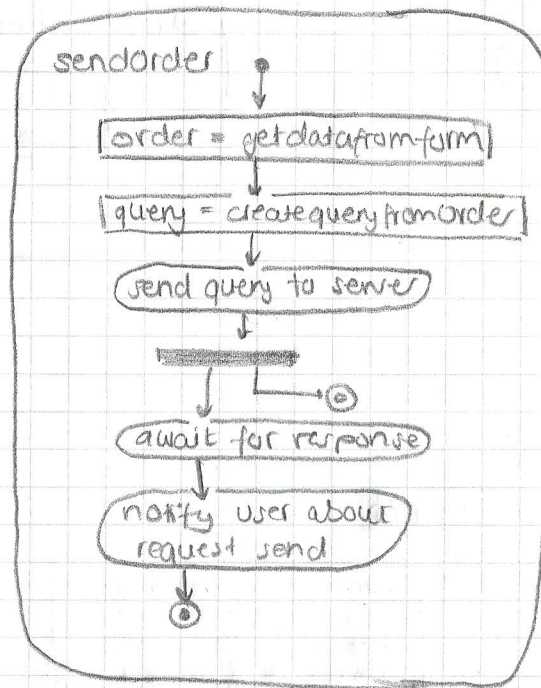 sendOrder
order = getdatafromform
query = createqueryfromOrder
send query to server
await for response
notify user about
request send